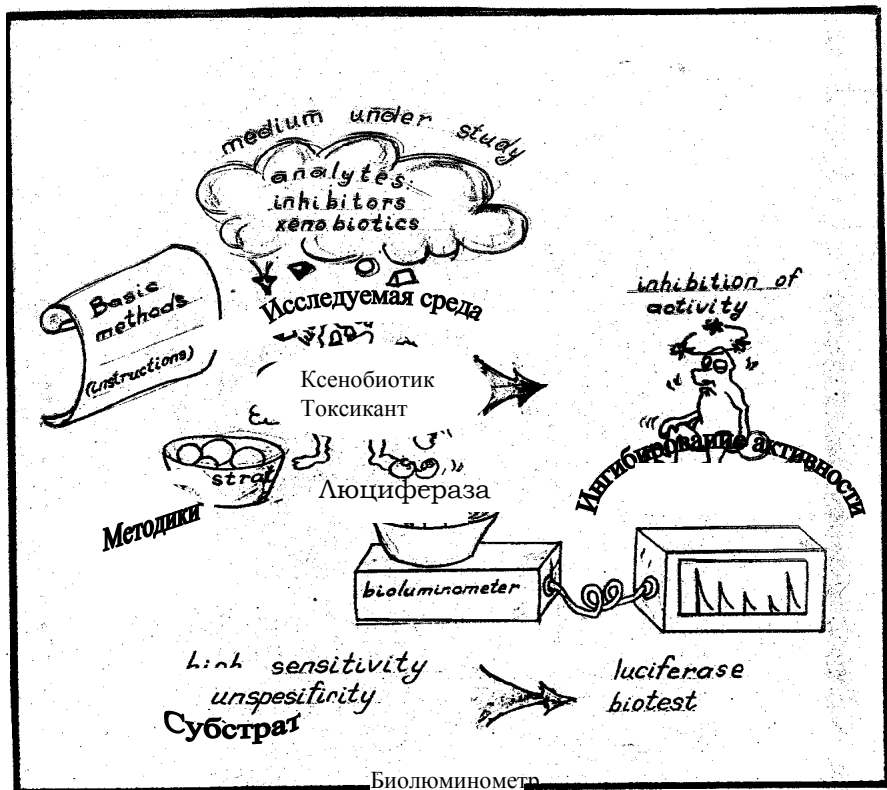 medium under study
analytes
inhibitors
xenobiotics
Basic
methods
(instructions)
Исследуемая среда
inhibition of
activity
Ксенобиотик
Токсикант
Ингибирование активности
strat
Люцифераза
Методики
bioluminometer
high sensitivity
unspesifirity
luciferase
biotest
Субстрат
Биолюминометр